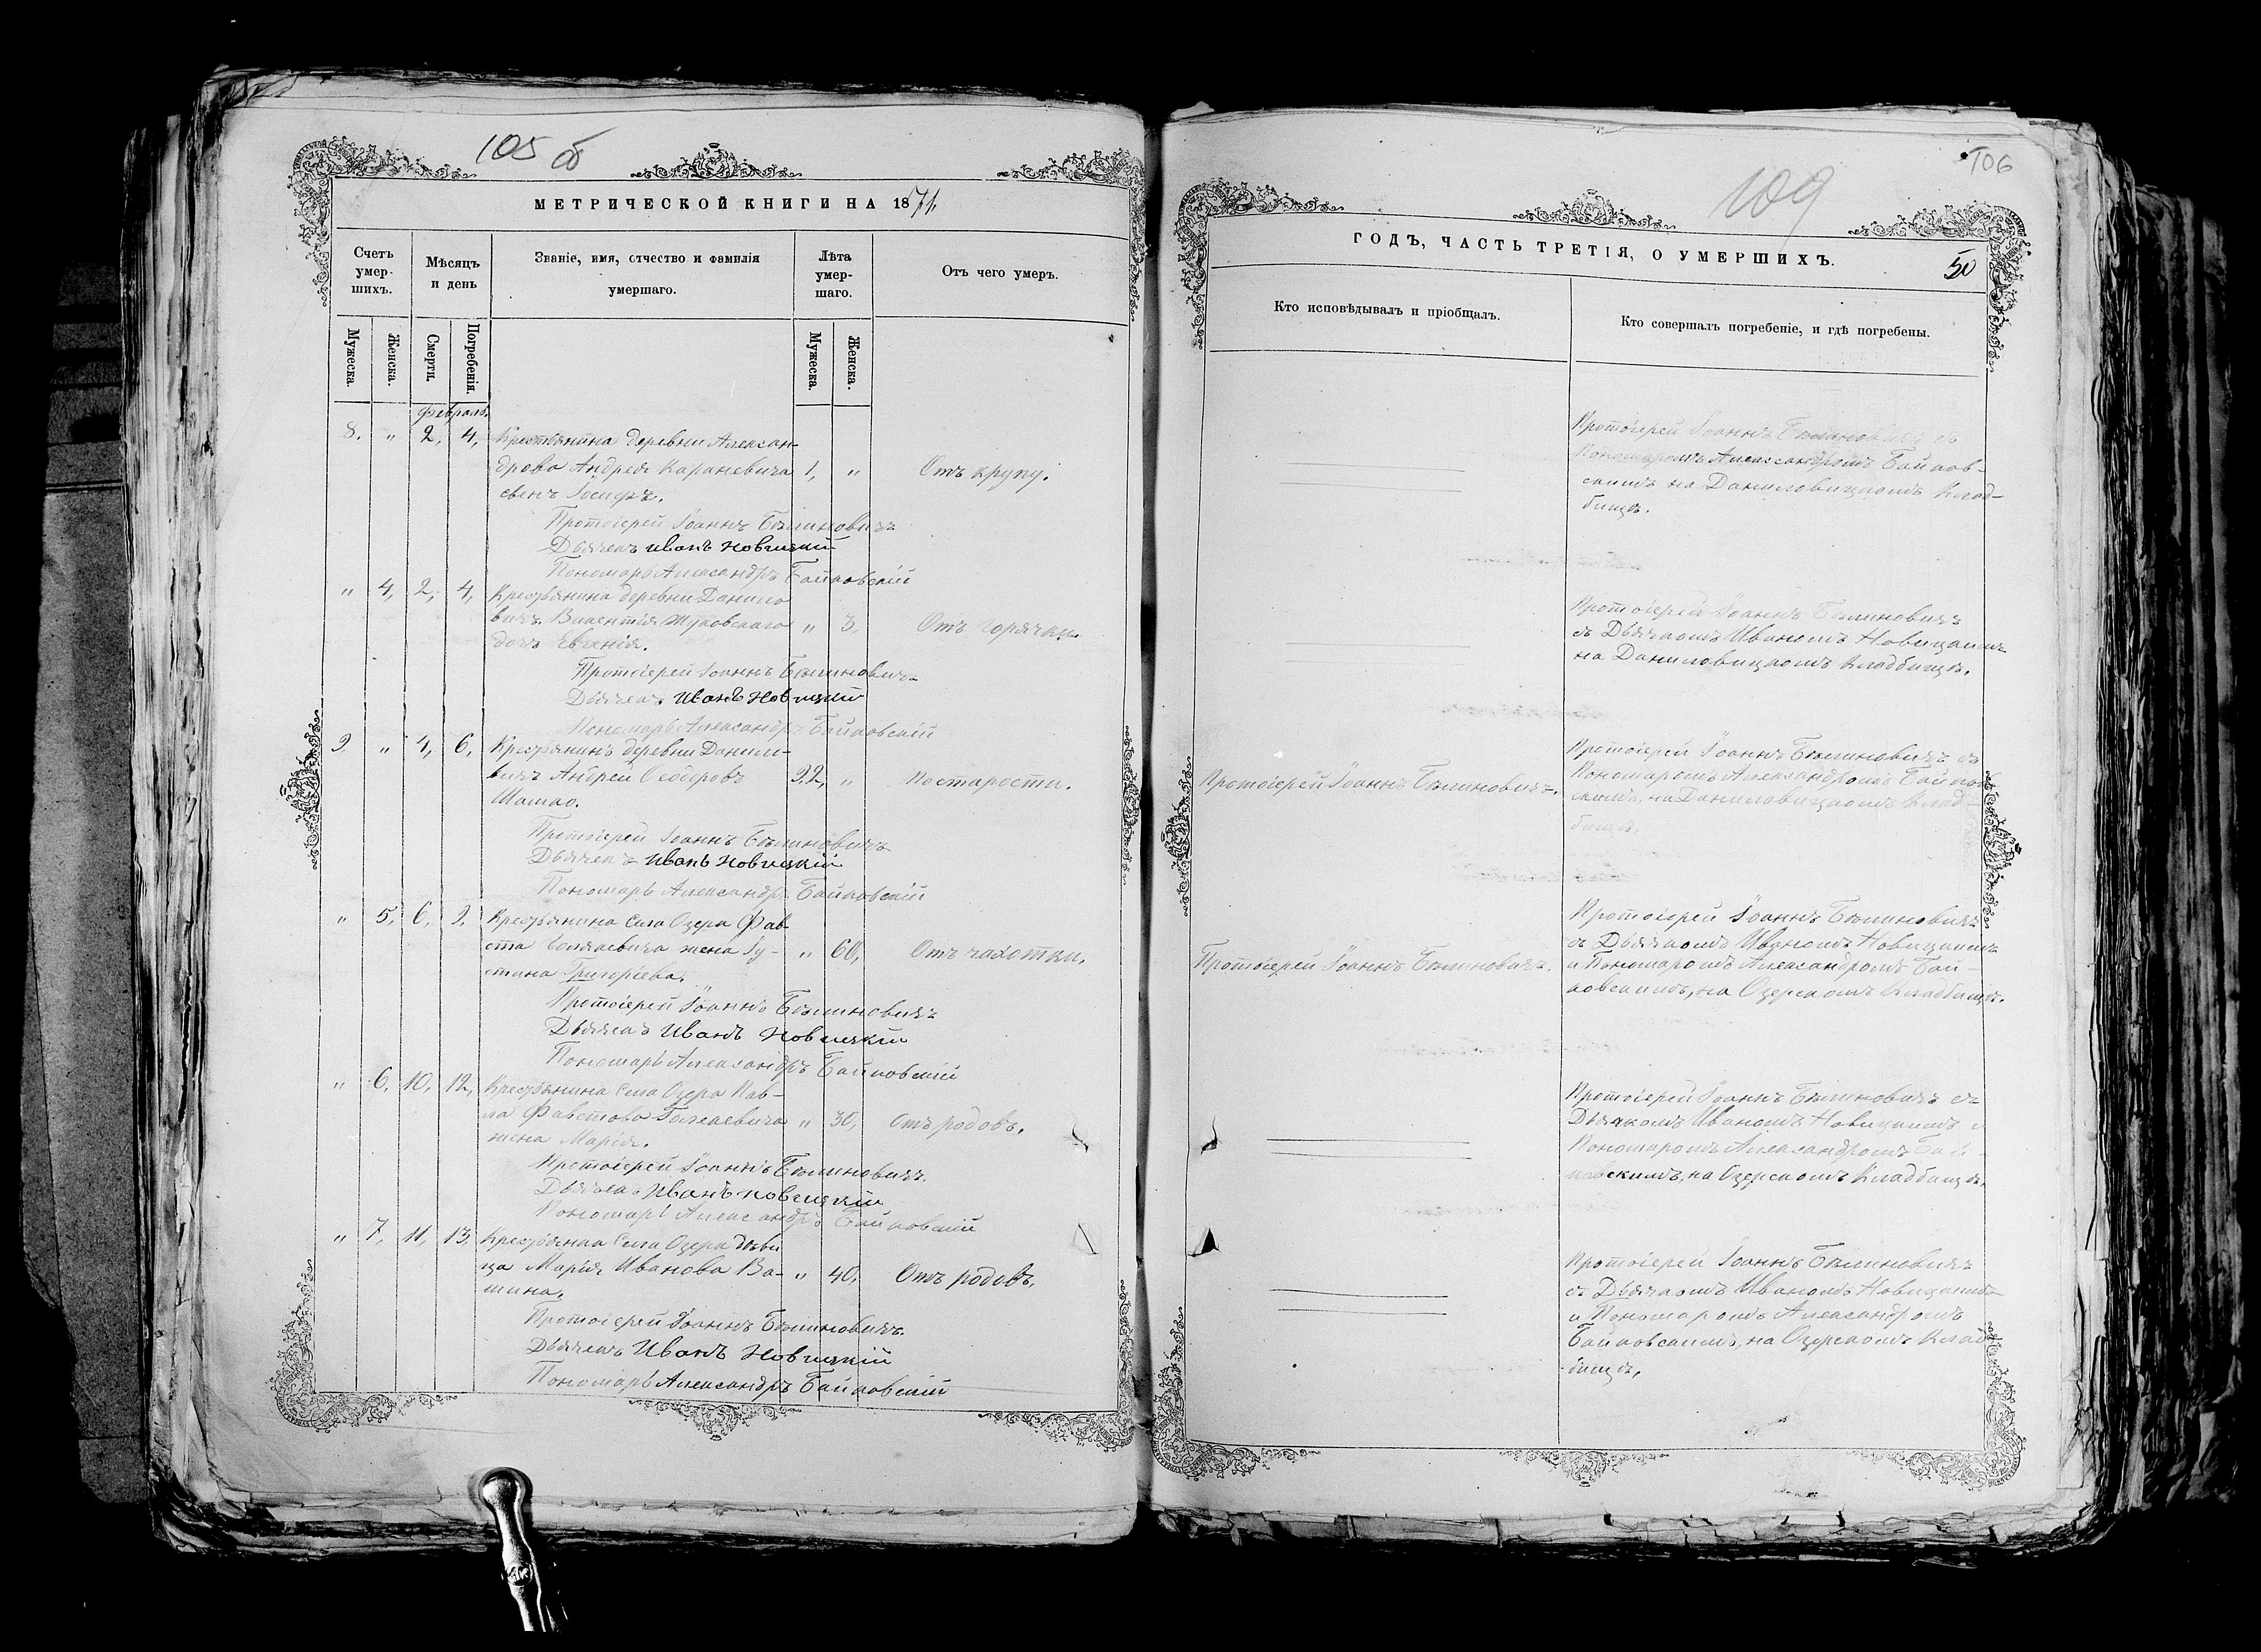 105 об
МЕТРИЧЕСКОЙ КНИГИ НА 1871,
Счетъ умер-шихъ.
Мѣсяцъ и день
Званіе, имя, отчество и фамилія умершаго.
Лѣта умер-шаго.
Отъ чего умеръ.
Мужеска.
Женска.
Смерти.
Погребенія.
Мужеска.
Женска.
Февраль.
8. " 2, 4, Крестьянина деревни Алексан-
дрова Андрея Караневича 1, " Отъ крупу.
сынъ Іосифъ.
Протоіерей Іоаннъ Бѣлиновичъ
Дьячекъ Иванъ Новицкій
Пономарь Александръ Байковскій
" 4, 2, 4, Крестьянина деревни Данило
вичъ Викентія Жуковскаго " 3, Отъ горячки.
дочь Евгенія.
Протоіерей Іоаннъ Бѣлиновичъ
Дьячекъ Иванъ Новицкій
Пономарь Александръ Байковскій
9 " 4, 6, Крестьянинъ деревни Данили-
вичъ Андрей Ѳеодоровъ 92, " постарости.
Протоіерей Іоаннъ Бѣлиновичъ
Дьячекъ Иванъ Новицкій
Пономарь Александръ Байковскій
" 5, 6, 9, Крестьянина Села Озера Фав
ста жена Іу- " 60, Отъ чахотки.
стина Григоріева.
Протоіерей Іоаннъ Бѣлиновичъ
Дьячекъ Иванъ Новицкій
Пономарь Александръ Байковскій
" 6, 10, 12, Крестьянина Села Озера Пав-
ла Фавстова " 30, Отъ родовъ.
жена Марія.
Протоіерей Іоаннъ Бѣлиновичъ
Дьячекъ Иванъ Новицкій
Пономарь Александръ Байковскій
" 7, 11, 13, Крестьянка Села Озера дѣви
ца Марія Иванова Ва- " 40, Отъ родовъ.
шина.
Протоіерей Іоаннъ Бѣлиновичъ
Дьячекъ Иванъ Новицкій
Пономарь Александръ Байковскій
106
109
ГОДЪ, ЧАСТЬ ТРЕТІЯ, О УМЕРШИХЪ.
50
Кто исповѣдывалъ и пріобщалъ.
Кто совершалъ погребеніе, и гдѣ погребены.
Протоіерей Іоаннъ Бѣлиновичъ съ
Пономаромъ Александромъ Байков-
скимъ на Даниловицкомъ Клад-
бищѣ.
Протоіерей Іоаннъ Бѣлиновичъ
съ Дьячкомъ Иваномъ Новицкимъ
на Даниловицкомъ Кладбищѣ.
Протоіерей Іоаннъ Бѣлиновичъ.
Протоіерей Іоаннъ Бѣлиновичъ съ
Пономаромъ Александромъ Байков
скимъ, на Даниловицкомъ Клад-
бищѣ.
Протоіерей Іоаннъ Бѣлиновичъ.
Протоіерей Іоаннъ Бѣлиновичъ
съ Дьячкомъ Иваномъ Новицкимъ
и Пономаромъ Александромъ Бай-
ковскимъ, на Озерскомъ Кладбищѣ.
Протоіерей Іоаннъ Бѣлиновичъ съ
Дьячкомъ Иваномъ Новицкимъ и
Пономаромъ Александромъ Бай
ковскимъ, на Озерскомъ Кладбищѣ.
Протоіерей Іоаннъ Бѣлиновичъ
съ Дьячкомъ Иваномъ Новицкимъ
и Пономаромъ Александромъ
Байковскимъ, на Озерскомъ Клад-
бищѣ.